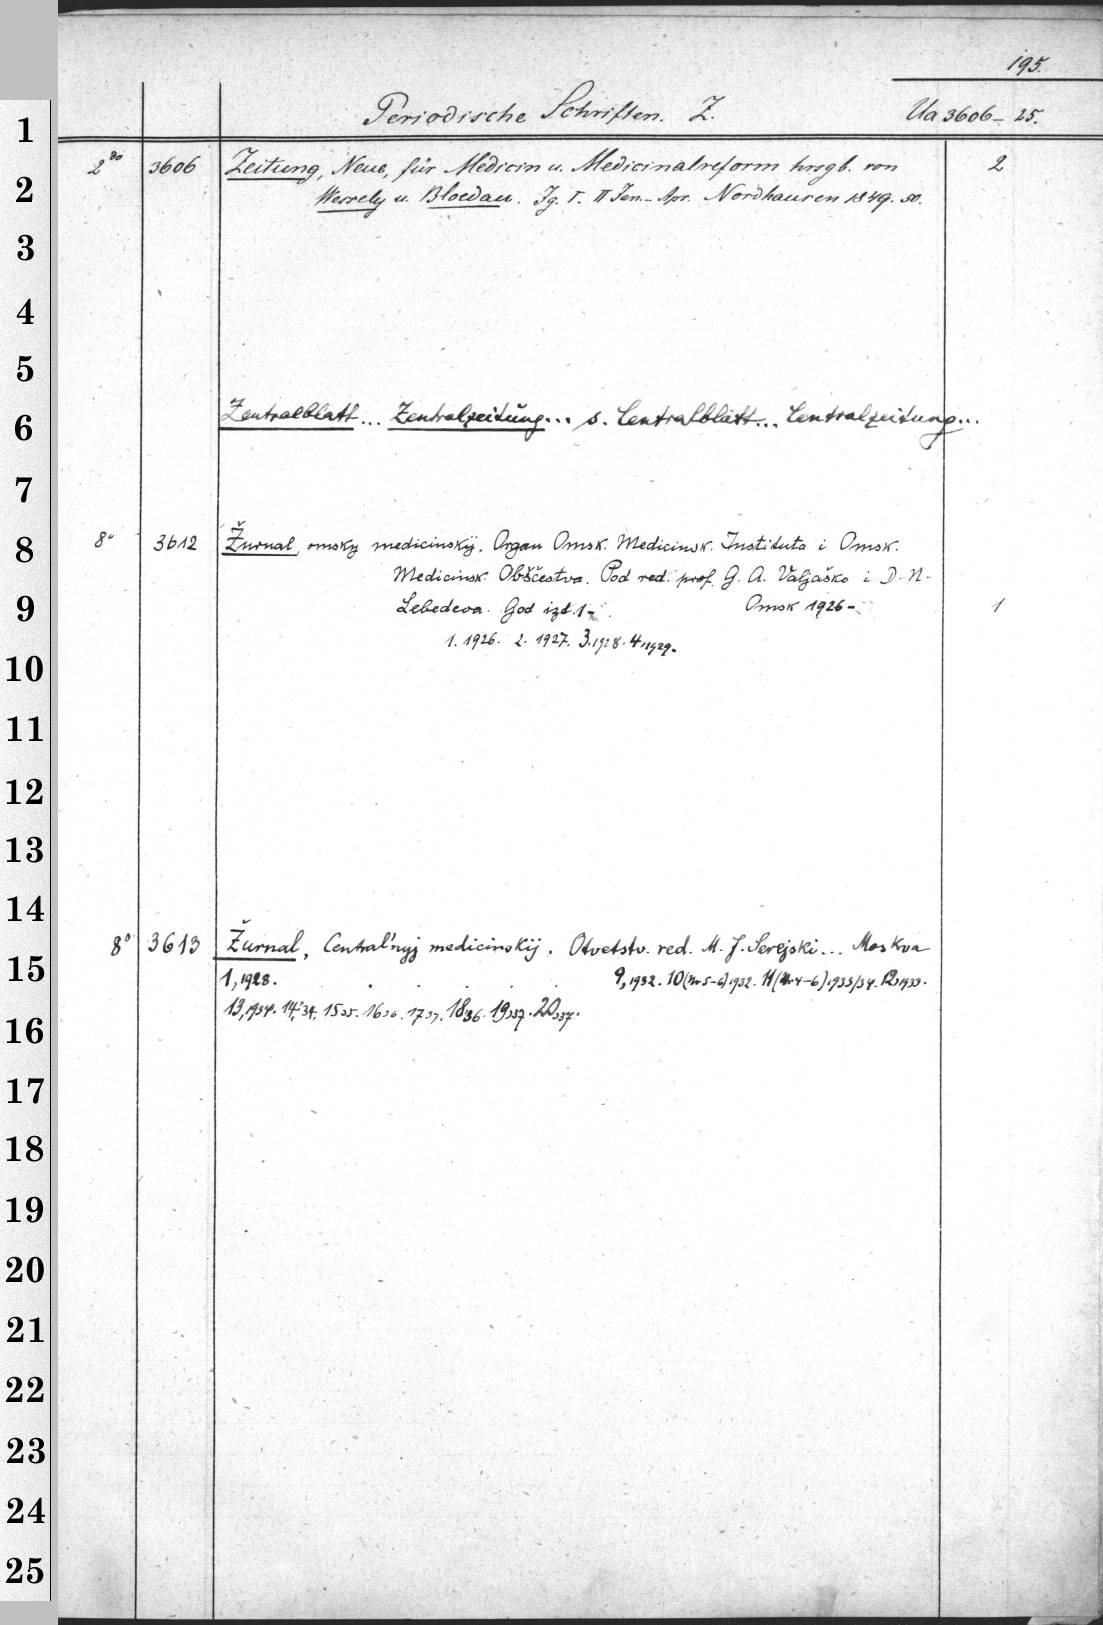 195.
Periodische Schriften. Z. Ua 3606-25.
2do 3606 Zeitung, Neue, für Medicin u. Medicinalreform hrsgb. von 2
Wessely u. Bloedau. Jg. I. II Jan.-Apr. Nordhausen 1849. 50.
Zentralblatt... Zentralzeitung... s. Centralblatt... Centralzeitung...
8° 3612 Žurnal, omsky medicinskij. Organ Omsk. Medicinsk. Instituta i Omsk.
Medicinsk. Obščestva. Pod red. prof. G. A. Valjaško i D. N.
Lebedeva. God izd. 1- Omsk 1926- 1
1. 1926. 2. 1927. 3. 1928. 4, 1929.
8° 3613 Žurnal, Central'nyj medicinskij. Otvetstv. red. M. J. Serejski... Moskva
1, 1928. . . . . . 9, 1932. 10 (Nr 5-6) 1932. 11 (Nr 4-6) 1933/34. 12, 1933.
13, 1934. 14, 34. 15 35. 16 36. 17 37. 18 36. 19 37. 20 37.
1
2
3
4
5
6
7
8
9
10
11
12
13
14
15
16
17
18
19
20
21
22
23
24
25